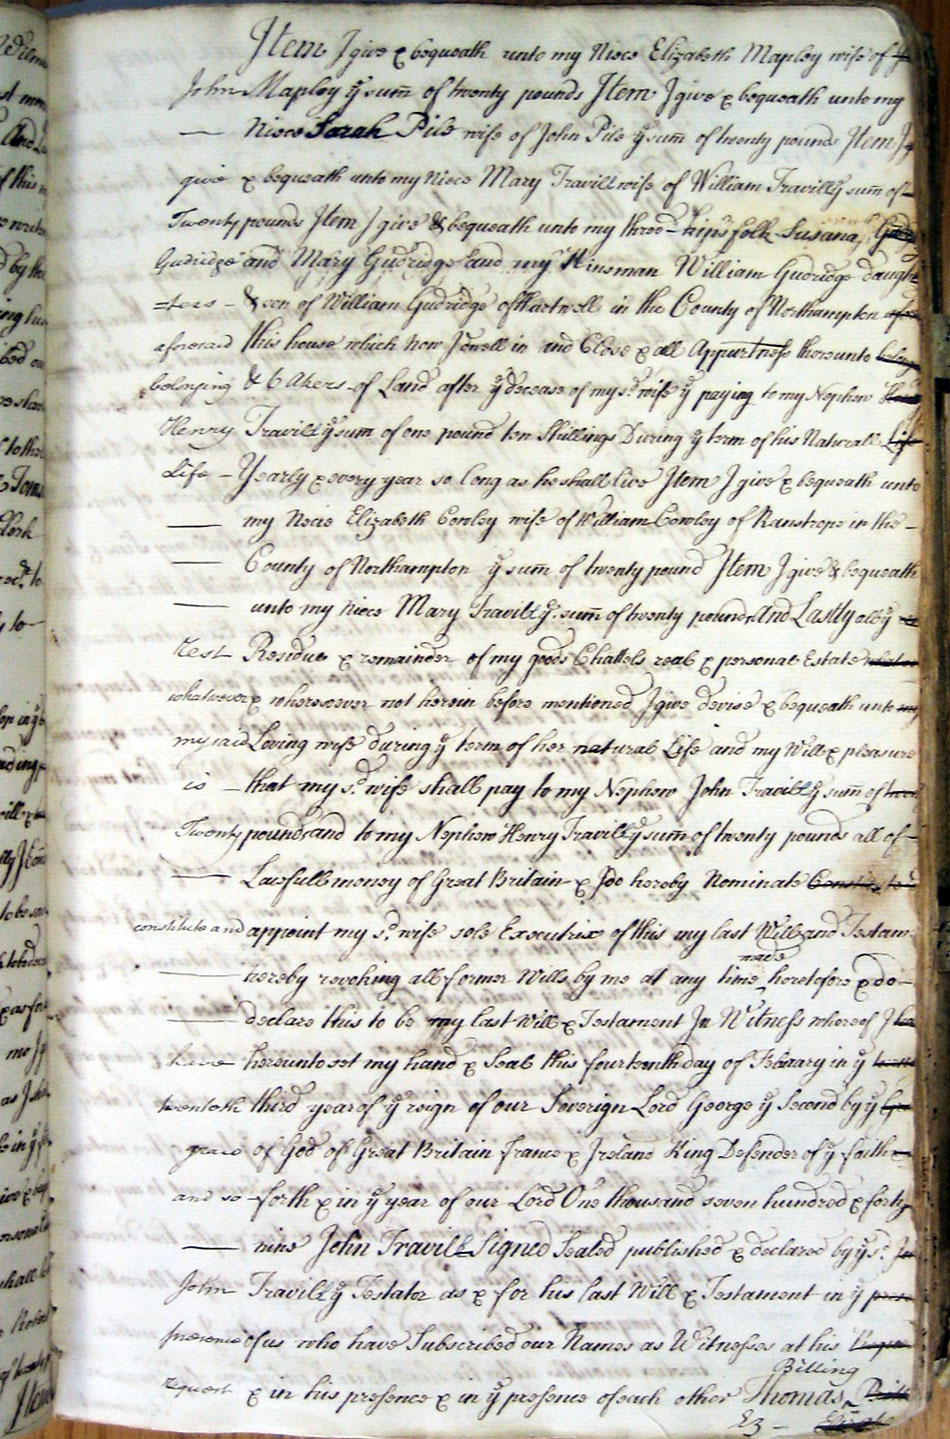 Item I give & bequeath unto my Niece Elizabeth Mapley wife of
John Mapley ye sum of twenty pounds Item I give & bequeath unto my
— Niece Sarah Pile wife of John Pile ye sum of twenty pounds Item I
give & bequeath unto my Niece Mary Travill wife of William Travill ye sum of
Twenty pounds Item I give & bequeath unto my three kinsfolk Susana
Gudridge and Mary Gudridge and my Kinsman William Gudridge daugh
=ters - & son of William Gudridge of Hartwell in the County of Northampton
aforesaid this house which now I dwell in and Close & all Appurtness thereunto
belonging & 6 Akers of Land after ye decease of my sd. wife ye paying to my Nephew
Henry Travill ye sum of one pound ten Shillings During ye term of his Naturall
Life - Yearly & every year so long as he shall live Item I give & bequeath unto
— my Neice Elizabeth Cowley wife of William Cowley of Ranstrope in the -
— County of Northampton ye sum of twenty pound Item I give & bequeath
— unto my Niece Mary Travill ye sum of twenty pounds And Lastly all ye
rest Residue & remainder of my goods Chattels real & personal Estate
whatsoever & wheresoever not herein before mentioned I give devise & bequeath unto
my said Loving wife during ye term of her natural Life and my Will & pleasure
is - that my sd. wife shall pay to my Nephew John Travill ye sum of
Twenty pounds and to my Nephew Henry Travill ye sum of twenty pounds all of -
— Lawfull money of Great Britain & I do hereby Nominate
constitute and appoint my sd. wife sole Executrix of this my last Will and Testam
made
— hereby revoking all former Wills by me at any time heretofore & do -
— declare this to be my last Will & Testament In Witness whereof I
have hereunto set my hand & Seal this fourteenth day of Febrary in ye
twenteth third year of ye reign of our Soverign Lord George ye Second by ye
grace of God of Great Britain France & Ireland King Defender of ye faith
and so - forth & in ye year of our Lord One thousand seven hundred & forty
— nine John Travill Signed Sealed published & declared by ye sd.
John Travill ye Testator as & for his last Will & Testament in ye
presence of us who have Subscribed our Names as Witnesses at his
Billing
request & in his presence & in ye presence of each other Thomas